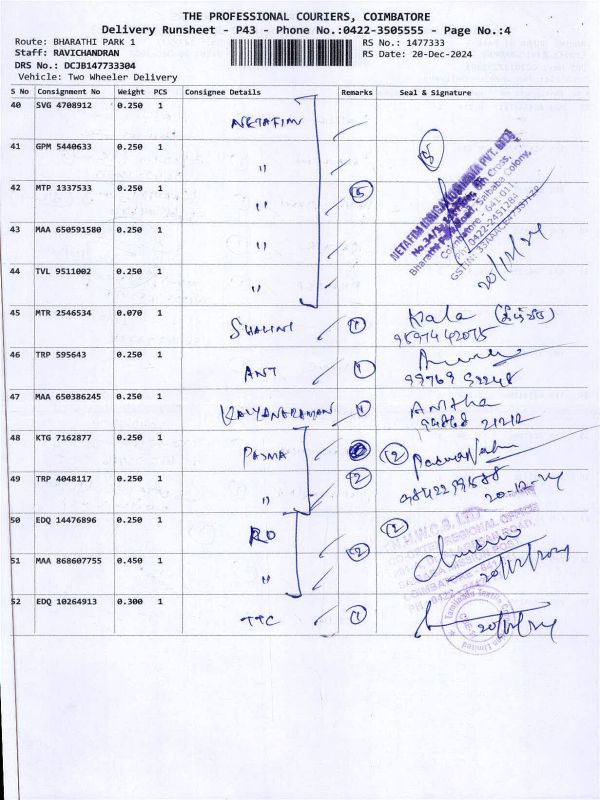 THE PROFESSIONAL COURIERS, COIMBATORE
Delivery Runsheet - P43 - Phone No.:0422-3505555 - Page No.:4
Route: BHARATHI PARK 1 RS No.: 1477333
Staff: RAVICHANDRAN RS Date: 20-Dec-2024
DRS No.: DCJB147733304
Vehicle: Two Wheeler Delivery
S No Consignment No Weight PCS Consignee Details Remarks Seal & Signature
40 SVG 4708912 0.250 1 NETAFIM
41 GPM 5440633 0.250 1 " 5
42 MTP 1337533 0.250 1 " 5
NETAFIM IRRIGATION INDIA PVT. LTD.
Bharathi Park Road, Saibaba Colony,
Coimbatore - 641 011
PH: 0422-2451284
20/12/24
43 MAA 650591580 0.250 1 "
44 TVL 9511002 0.250 1 "
45 MTR 2546534 0.070 1 SHALINI 1 Kala
46 TRP 595643 0.250 1 ANT 1
47 MAA 650386245 0.250 1 KALYANARAMAN 1 Anitha
48 KTG 7162877 0.250 1 PADMA 2
49 TRP 4048117 0.250 1 " 2
20-12-24
50 EDQ 14476896 0.250 1 RO 2
51 MAA 868607755 0.450 1 " 2
20/12/2024
52 EDQ 10264913 0.300 1 TTC 1
20/12/24